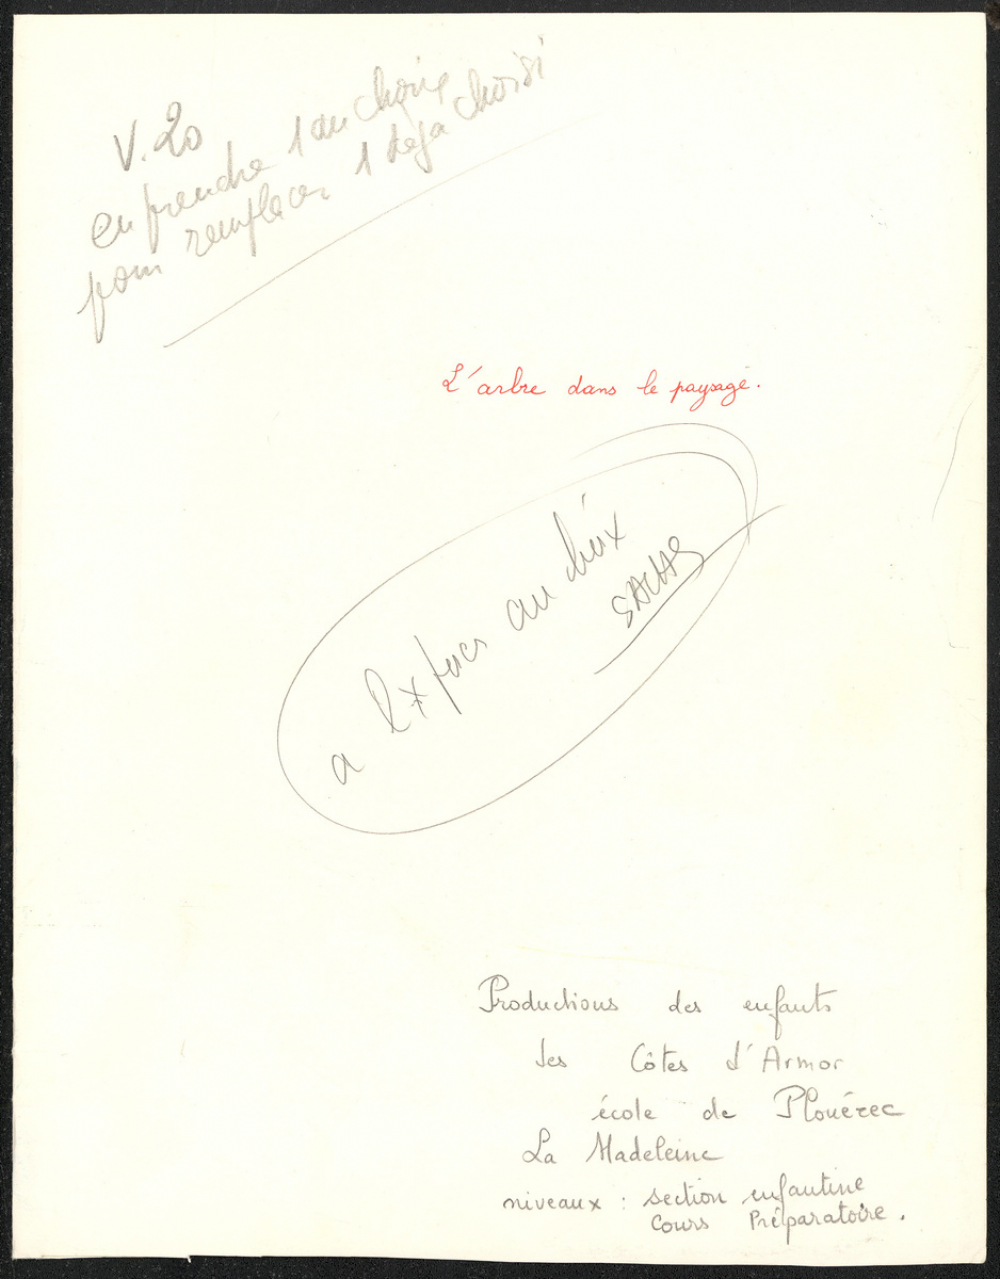 V. 20
en prendre 1 au choix
pour remplacer 1 déja choisi
L'arbre dans le paysage.
a au choix
Productions des enfants
des Côtes d'Armor
école de Plouérec
La Madeleine
niveaux : section enfantine
Cours Préparatoire.